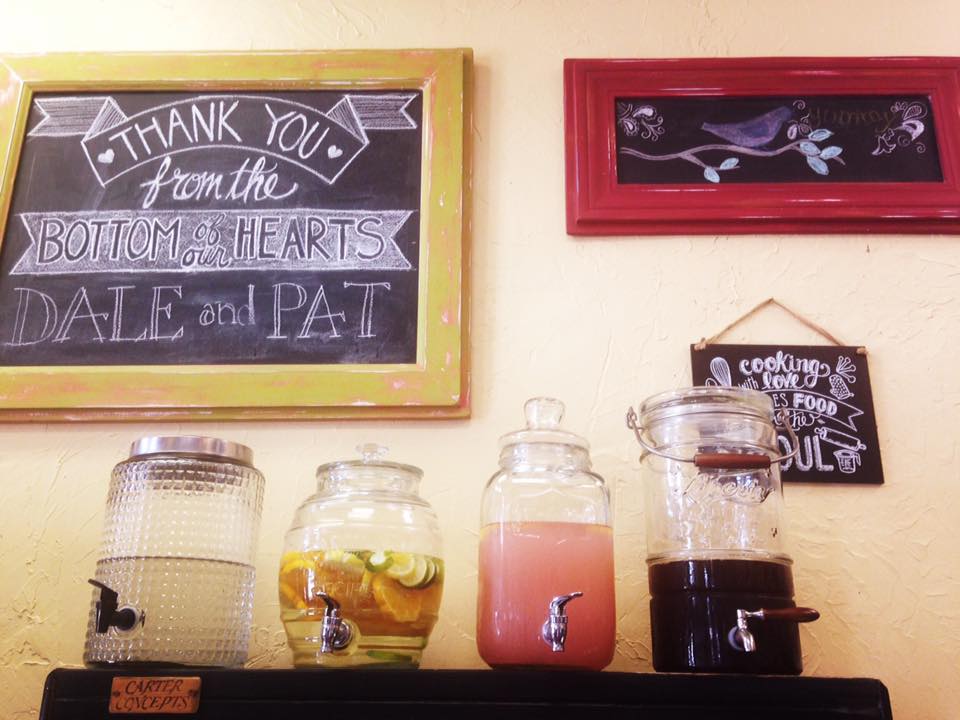 THANK YOU
from the
BOTTOM of our HEARTS
DALE and PAT
yummy
cooking
with love
ES FOOD
the
OUL
CARTER
CONCEPTS